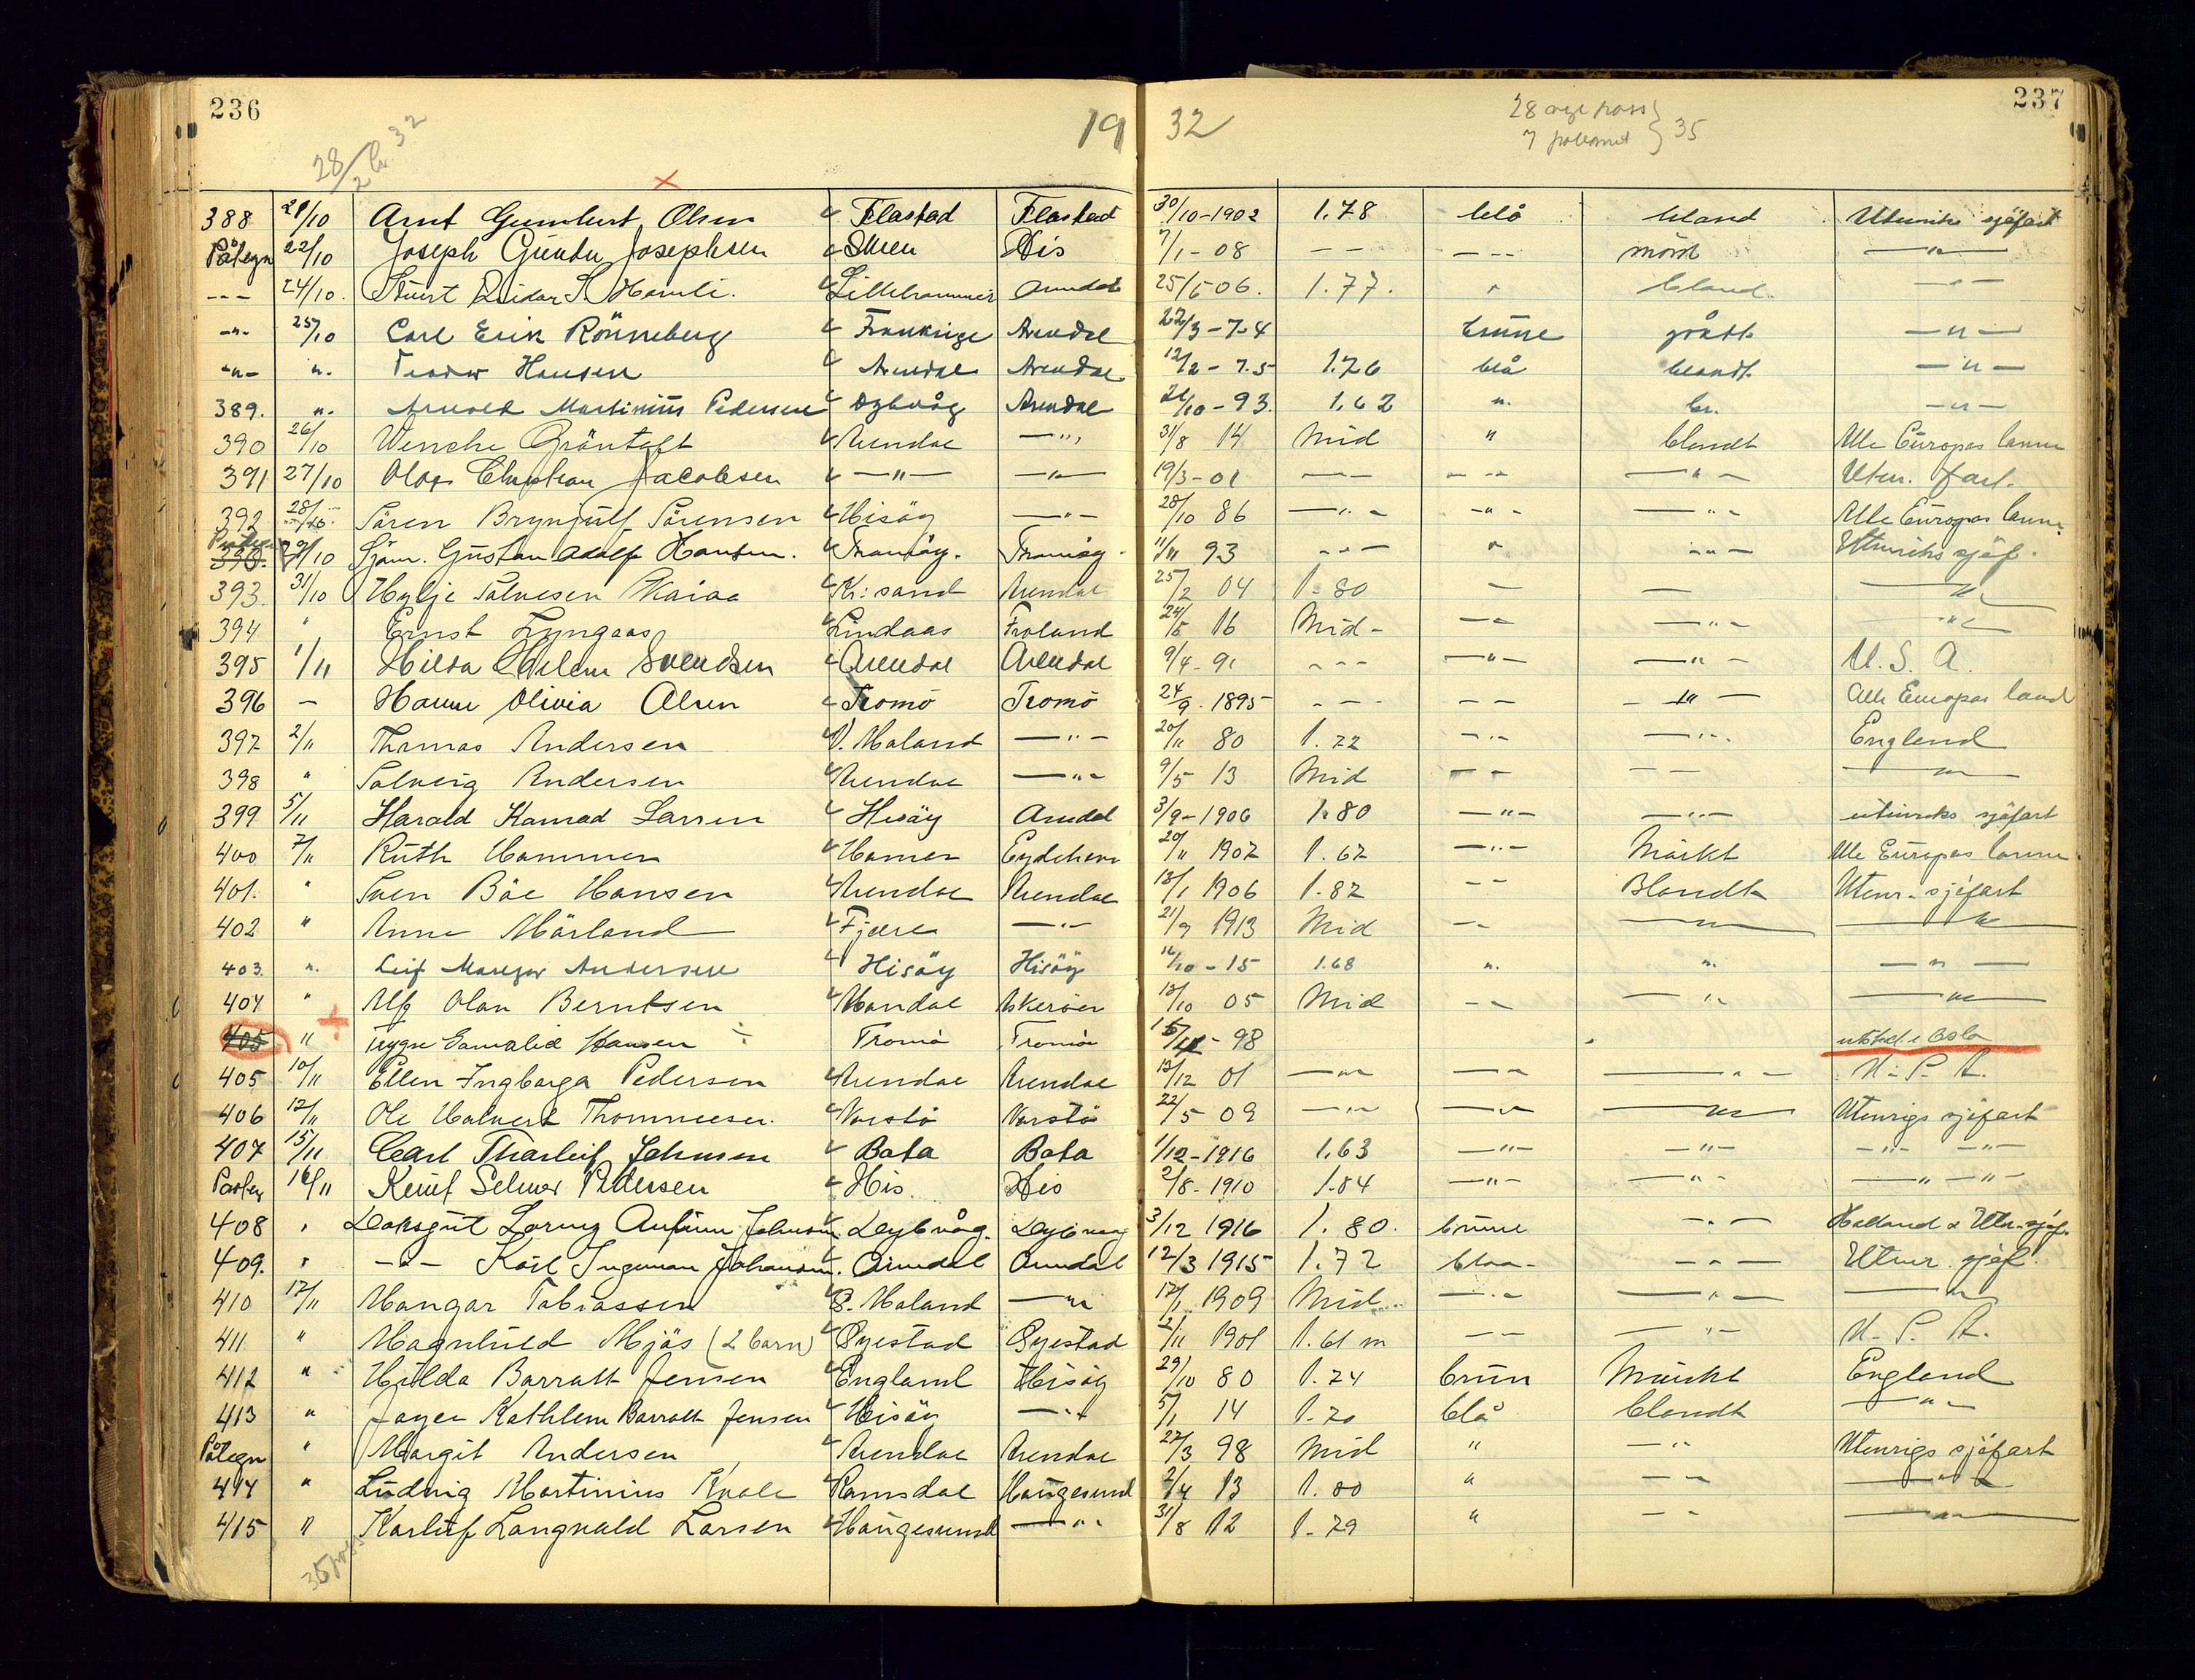 236
28/2 32
19 32
28 nye pass } 35
7 påtegnet
237
388 21/10 Arnt Gunilurt Olsen Flastad Flastad 30/10-1902 1.78 blå blond Utenriks sjøfart
Påtegn 22/10 Joseph Gundu Josephsen Skien His 7/1-08 -- --- mörk —"—
--- 24/10. Stuert Reidar S. Hamli. Lillehammer Arendal 25/5 06. 1.77. " blond. —"—
-"- 25/10 Carl Erik Rönneberg Frankrige Arendal 22/3-74 brune grått —"—
-"- ". Teodor Hansen Arendal Arendal 12/2-75 1.76 blå blondt. —"—
389. ". Arnold Martinius Pedersen Dybvåg Arendal 21/10-93. 1.62 ". br. —"—
390 26/10 Wenche Gröntoft Arendal —"— 31/8 14 Mid " blondt Alle Europas lanne
391 27/10 Olaf Christian Jacobsen —"— —"— 19/3-01 --- --- —"— Uten. fart.
392 28/10 Sören Brynjulf Sörensen Hisöy —"— 28/10 86 —"— -"- —"— Alle Europas lanne
Påtegn 390. 29/10 Sjöm. Gustav Adolf Hansen. Tromöy. Tromöy. 11/11 93 --- " --- Utenriks sjöf.
393. 31/10 Hylje Salvesen Kr:sand Arendal 25/2 04 1-80 — — —"—
394 " Ernst Lyngaas Lindaas Froland 24/5 16 Mid- -- —"— —"—
395 1/11 Hilda Helene Svendsen Arendal Arendal 9/4-91 --- —"— —"— U.S.A.
396 — Hanne Olivia Olsen Tromö Tromö 24/9.1895 --- -- —"— Alle Europas land
397 2/11 Thomas Andersen Ö. Moland —"— 20/11 80 1.72 -"- —"— England
398 " Solveig Andersen Arendal —"— 9/5 13 Mid -- -- —"—
399 5/11 Harald Konrad Larsen Hisöy Arendal 3/9-1906 1.80 —"— —"— utenriks sjøfart
400 7/11 Ruth Hammer Hamar Eydehavn 20/11 1907 1.67 —"— Mörkt Alle Europas lanne.
401. " Sven Böe Hansen Arendal Arendal 13/1 1906 1.82 -- Blondt Utenr. sjöfart
402 " Anne Mörland Fjære —"— 21/9 1913 Mid -- —"— —"—
403. ". Leif Andersen Hisöy Hisöy 16/10-15 1.68 ". ". —"—
404 " Alf Olav Berntsen Mandal Askeröen 13/10 05 Mid -- —"— —"—
405 " Trygve Gamaliel Hansen ÷ Tromö Tromöi 15/11-98 utsted i Oslo
405 10/11 Ellen Ingborga Pedersen Arendal Arendal 13/12 01 —"— —"— —"— U.S.A.
406 12/11 Ole Halvert Thommesen. Narstö Narstö 22/5 09 —"— —"— —"— Utenrigs sjöfart
407 15/11 Carl Tharleif Johnsen Bota Bota 1/12-1916 1,63 —"— —"— -"- -"-
Påtegn 16/11 Knut Selmer Pettersen His. His 2/8-1910 1.84 —"— —"— —"—"—
408 " Lorenz Anfinn Johnsen Dybvåg. Dybvåg 3/12 1916 1.80. brune -"- Holland & Utn. sjöf.
409. " —"— Karl Ingeman Johansen. Arendal Arendal 12/3 1915 1.72 blaa- -"- Utenr. sjöf.
410 17/11 Mangar Tobiassen Ö. Moland —"— 17/1 1909 Mid —"— —"— —"—
411 " Magnhild Mjös (2 barn) Öyestad Öyestad 2/11 1901 1.61 m -- —"— U.S.A.
412 " Hilda Barratt Jensen England Hisöy 29/10 80 1.74 brun Mörkt England
413 " Joyce Kathleen Barratt Jensen Hisöy —"— 5/1 14 1.70 blå blondt —"—
Påtegn " Margit Andersen Arendal Arendal 27/3 98 Mid " —"— Utenrigs sjöfart
414 " Ludvig Martinius Kvale Romsdal Haugesund 2/4 13 1.80 " -- —"—
415 " Karluf Langvald Larsen Haugesund —"— 31/8 12 1-79 " -- —"—
35 pass